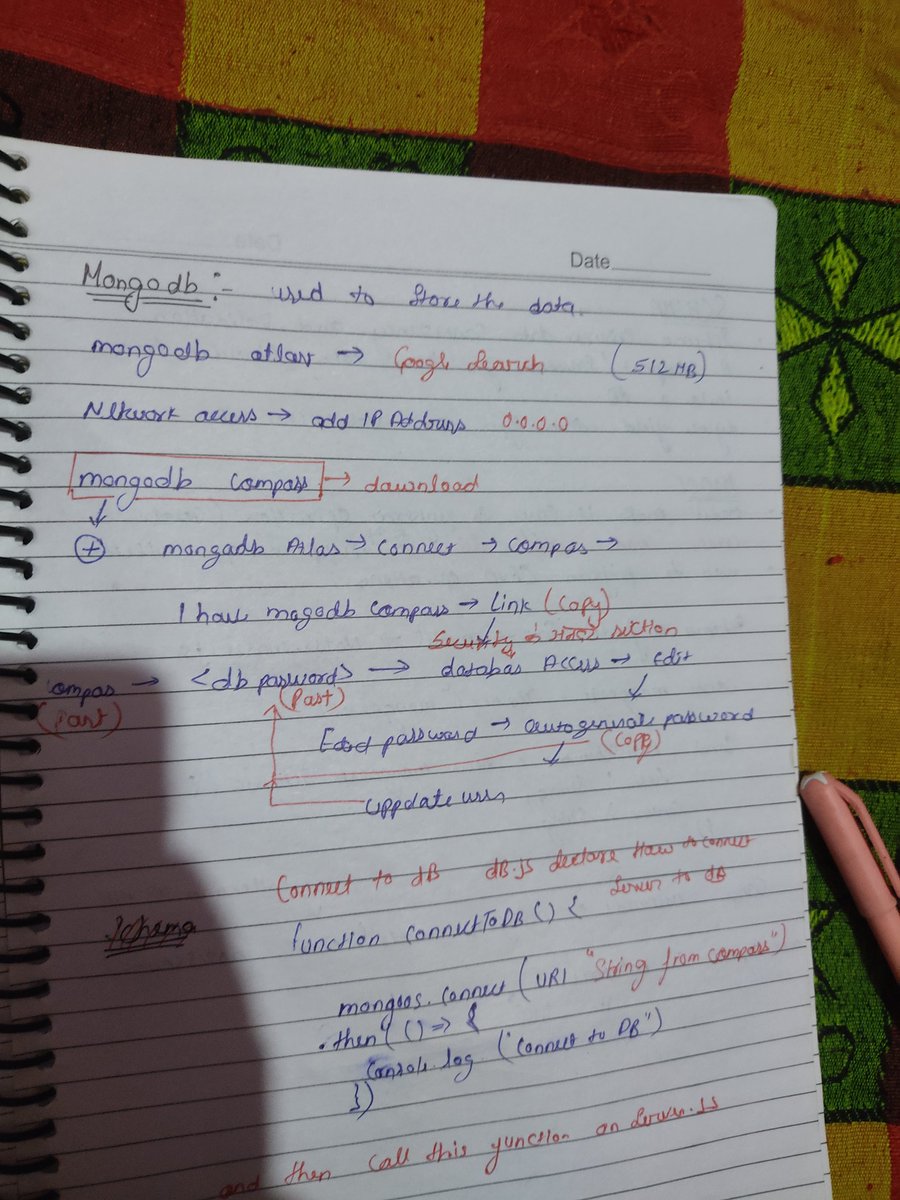 Date
Mongodb :- used to Store the data.
mongodb atlas → Google Search (512 MB)
Network access → add IP Address 0.0.0.0
mongodb compass → dawnload
↓
+ mongadb Atlas → Connect → Compas →
I have magodb Compass → link (Copy)
Security के अन्दर section
ompas → <db password> → databas Access → Edit
(Past) (Past)
Edtd password → autogenerate password
(Copy)
Uppdate user
Connect to dB dB.js declare Haw to connect
Server to dB
Schema
function connectToDB () {
mongoos.connect (URI "String from compass")
.then ( () => {
Console.log ("Connect to DB")
})
and then Call this function on Server.js